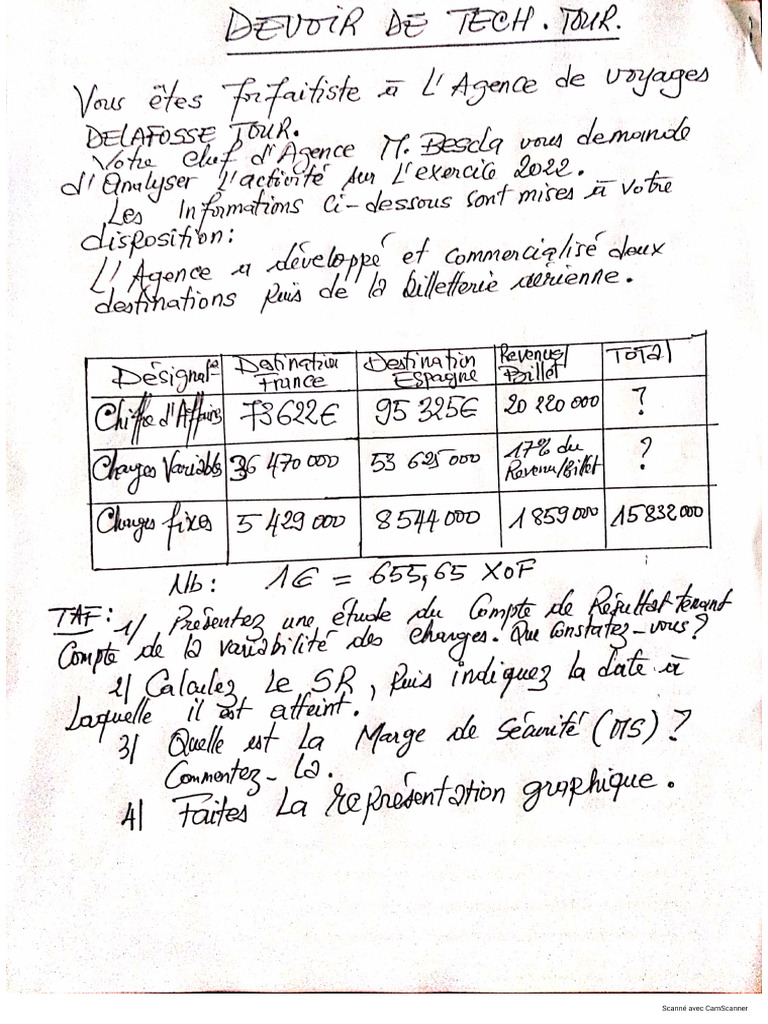 DEVOIR DE TECH. TOUR.
Vous êtes forfaitiste à L'Agence de voyages
DELAFOSSE TOUR.
Votre chef d'Agence M. Besda vous demande
d'Analyser L'activité sur L'exercice 2022.
Les Informations ci-dessous sont mises à votre
disposition:
L'Agence a développé et commercialisé deux
destinations puis de la billetterie aérienne.
Désignat° Destination France Destination Espagne Revenus/Billet TOTAL
Chiffre d'Affaires 73622€ 95 325€ 20 220 000 ?
Charges Variables 36 470 000 53 625 000 17% du Revenu/Billet ?
Charges fixes 5 429 000 8 544 000 1 859 000 15 832 000
Nb: 1€ = 655,65 XOF
TAF: 1/ Présentez une étude du Compte de Résultat tenant
Compte de la variabilité des charges. Que Constatez-vous?
2/ Calculez Le SR, puis indiquez la date à
Laquelle il est atteint.
3/ Quelle est La Marge de Sécurité (MS) ?
Commentez-La.
4/ Faites La représentation graphique.
Scanné avec CamScanner